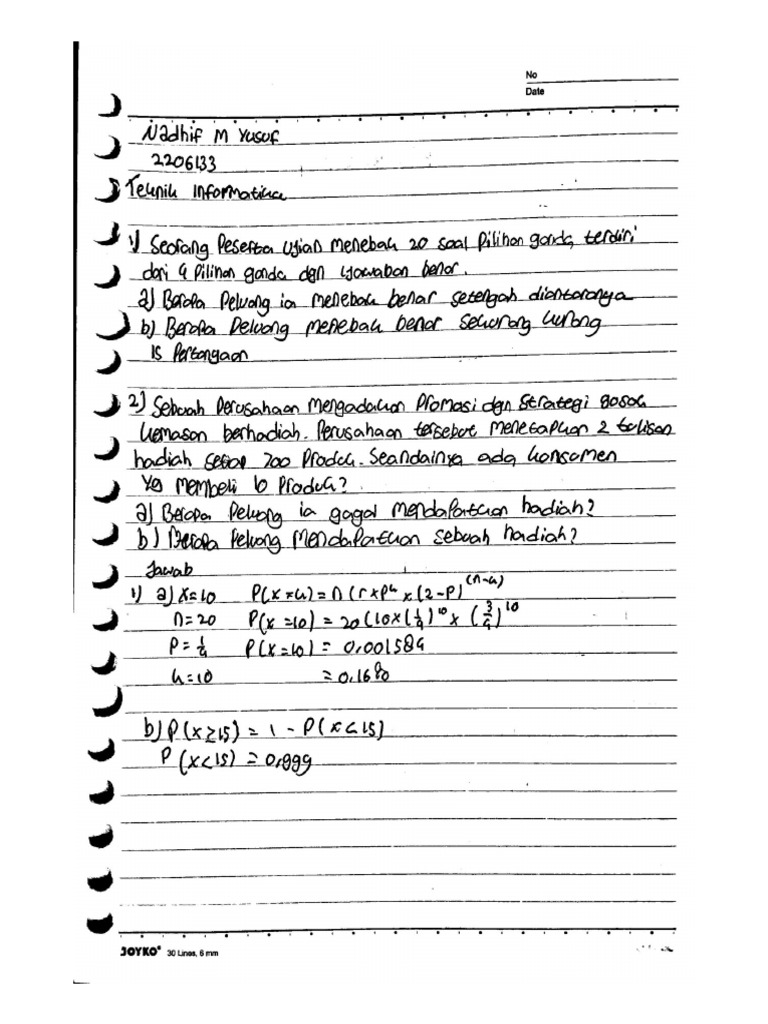 No
Date
Nadhif M Yusuf
2206133
Teknik Informatika
1) Seorang Peserta Ujian menebak 20 soal Pilihan ganda, terdiri
dari 4 Pilihan ganda dgn 1 jawaban benar.
a) Berapa Peluang ia menebak benar setengah diantaranya
b) Berapa Peluang menebak benar sekurang kurang
15 Pertanyaan
2) Sebuah Perusahaan mengadakan Promosi dgn Strategi gosok
kemasan berhadiah. Perusahaan tersebut menetapkan 2 tulisan
hadiah setiap 200 Produk. Seandainya ada konsumen
yg membeli 10 Produk?
a) Berapa Peluang ia gagal mendapatkan hadiah?
b) Berapa Peluang Mendapatkan sebuah hadiah?
Jawab
1) a) x=10 P(x=k) = n(r×p^k × (2-P)^(n-k)
n=20 P(x=10) = 20(10×(1/4)^10 × (3/4)^10
P=1/4 P(x=10) = 0,001584
k=10 = 0,16%
b) P(x≥15) = 1 - P(x<15)
P(x<15) = 0,999
JOYKO® 30 Lines, 6 mm